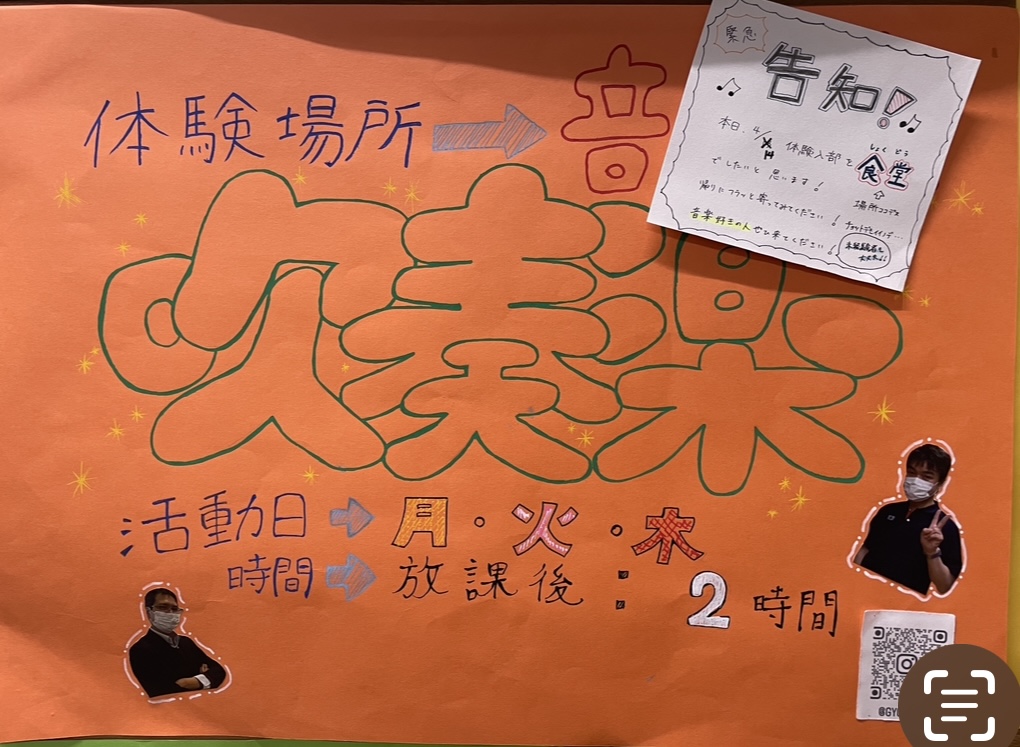 体験場所→音
緊急
告知!
本日、4/
体験入部を食堂
しょくどう
でしたいと思います!
帰りにフラッと寄ってみてください!
音楽好きの人ぜひ来てください!
場所ココデス
チョットデモイイノデ…
吹奏楽
活動日→月・火・木
時間→放課後:2時間